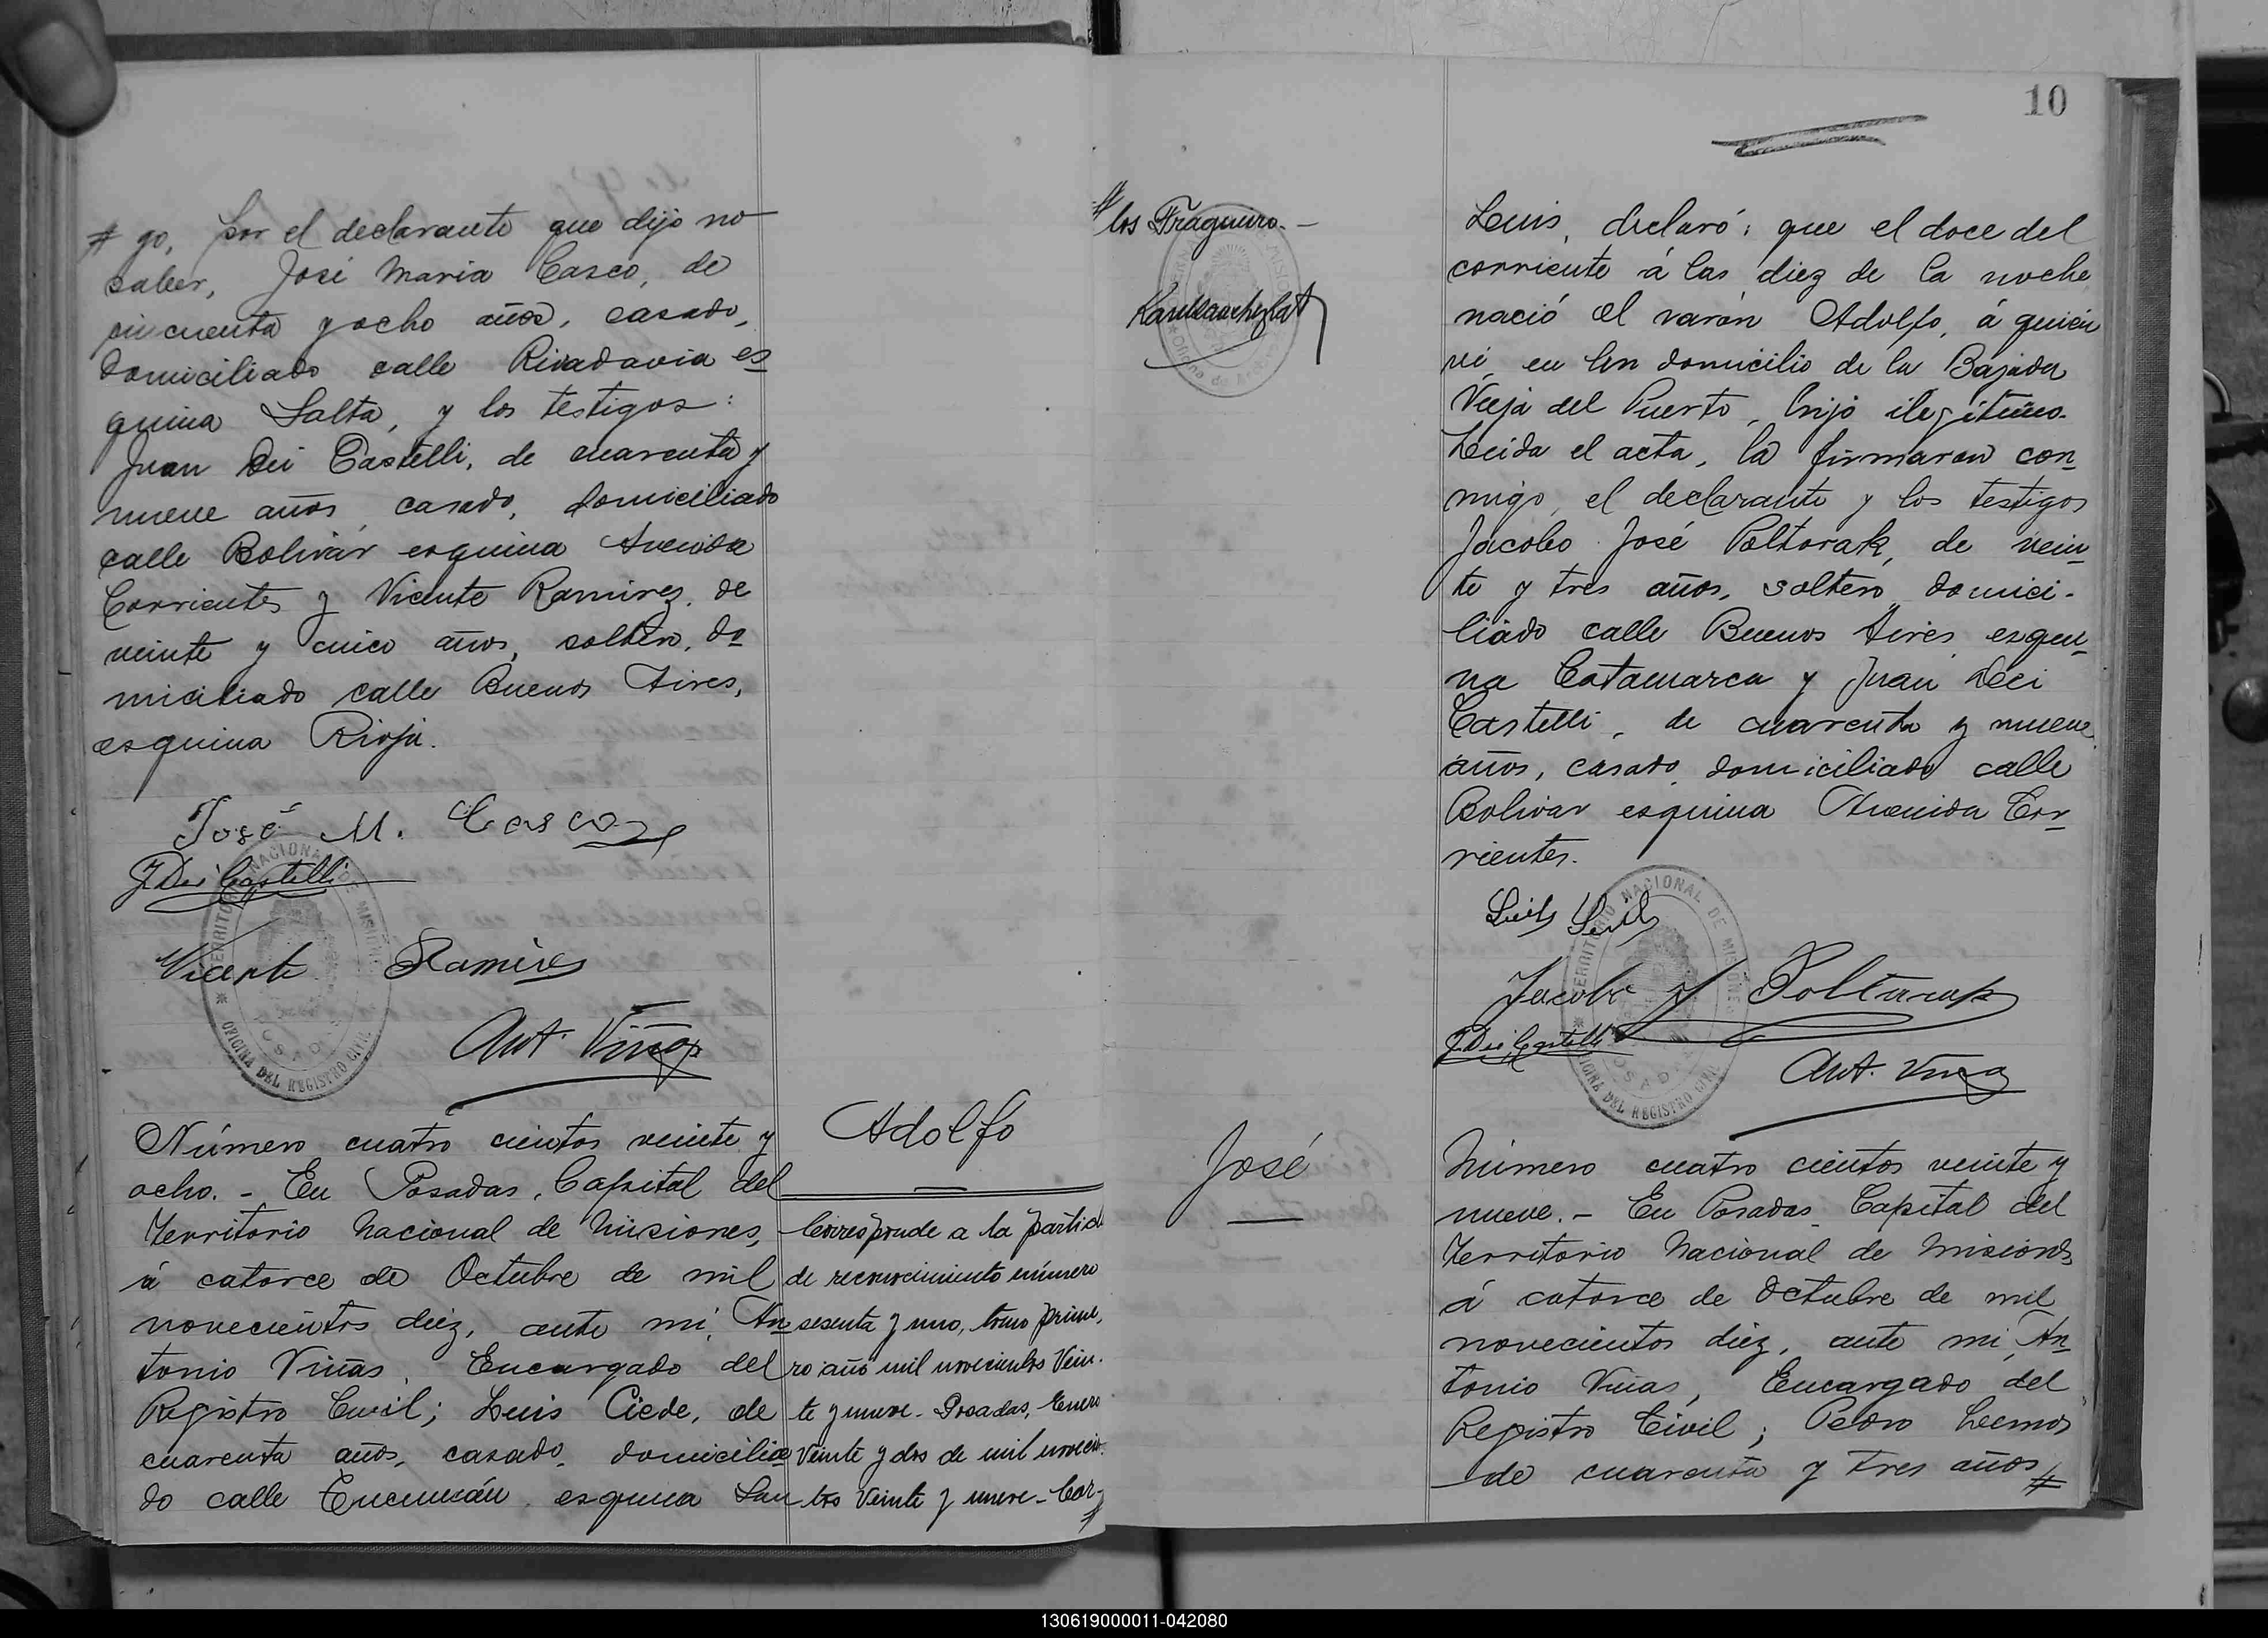 # go, por el declarante que dijo no
saber, José Maria Casco, de
cincuenta y ocho años, casado,
domiciliado calle Rivadavia es
quina Salta, y los testigos:
Juan Dei Castelli, de cuarenta y
nueve años, casado, domiciliado
calle Bolivar esquina Avenida
Corrientes y Vicente Ramirez, de
veinte y cinco años, soltero, do
miciliado calle Buenos Aires,
esquina Rioja.
José M. Casco
J. Dei Castelli
Vicente Ramires
Ant. Viñas
TERRITORIO NACIONAL DE MISIONES
POSADAS
OFICINA DEL REGISTRO CIVIL
Número cuatro cientos veinte y
ocho. - En Posadas, Capital del
Territorio Nacional de Misiones,
á catorce de Octubre de mil
novecientos diez, ante mi, An
tonio Viñas, Encargado del
Registro Civil; Luis Ciede, de
cuarenta años, casado, domicilia
do calle Tucumán, esquina San
Adolfo
Corresponde a la partida
de reconocimiento número
sesenta y uno, tomo prime,
ro año mil novecientos Vein-
te y nueve. Posadas, Enero
Veinte y dos de mil novecien-
tos Veinte y nueve - Car-
#
10
# los Fragueiro. -
Luis, declaró: que el doce del
corriente á las diez de la noche
nació el varón Adolfo, á quien
vi, en un domicilio de la Bajada
Vieja del Puerto, hijo ilegítimo.
Leida el acta, la firmaron con
migo, el declarante y los testigos
Jacobo José Poltorak, de vein
te y tres años, soltero, domici-
liado calle Buenos Aires, esqui
na Catamarca y Juan Dei
Castelli, de cuarenta y nueve
años, casado, domiciliado calle
Bolivar esquina Avenida Cor
rientes.
Jacobo J Poltorak
J. Dei Castelli
Ant. Viñas
TERRITORIO NACIONAL DE MISIONES
POSADAS
OFICINA DEL REGISTRO CIVIL
José
Número cuatro cientos veinte y
nueve. - En Posadas, Capital del
Territorio Nacional de Misiones
á catorce de Octubre de mil
novecientos diez, ante mi, An
tonio Viñas, Encargado del
Registro Civil; Pedro Lemos
de cuarenta y tres años #
130619000011-042080